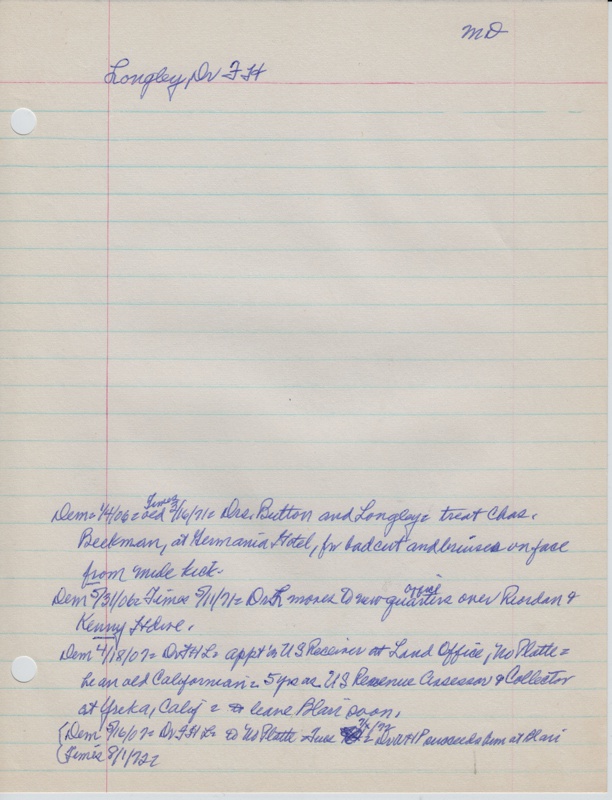 MD
Longley, Dr F H
Dem = 1/4/06 = Times 2/16/71 = Drs. Button and Longley = treat Chas.
Beckman, at Germania Hotel, for bad cut and bruises on face
from mule kick.
Dem 5/31/06 = Times 5/11/71 = Dr L moves to new quarters over Riordan &
Kenny Hdwe.
Dem 4/18/07 = Dr F H L = appt'd US Receiver at Land Office, No Platte =
he an old Californian = 5 yrs as US Revenue Assessor & Collector
at Yreka, Calif = leave Blair soon.
Dem 5/16/07 = Dr F H L = to No Platte = Tues = Dr succeeds him at Blair
Times 8/1/72